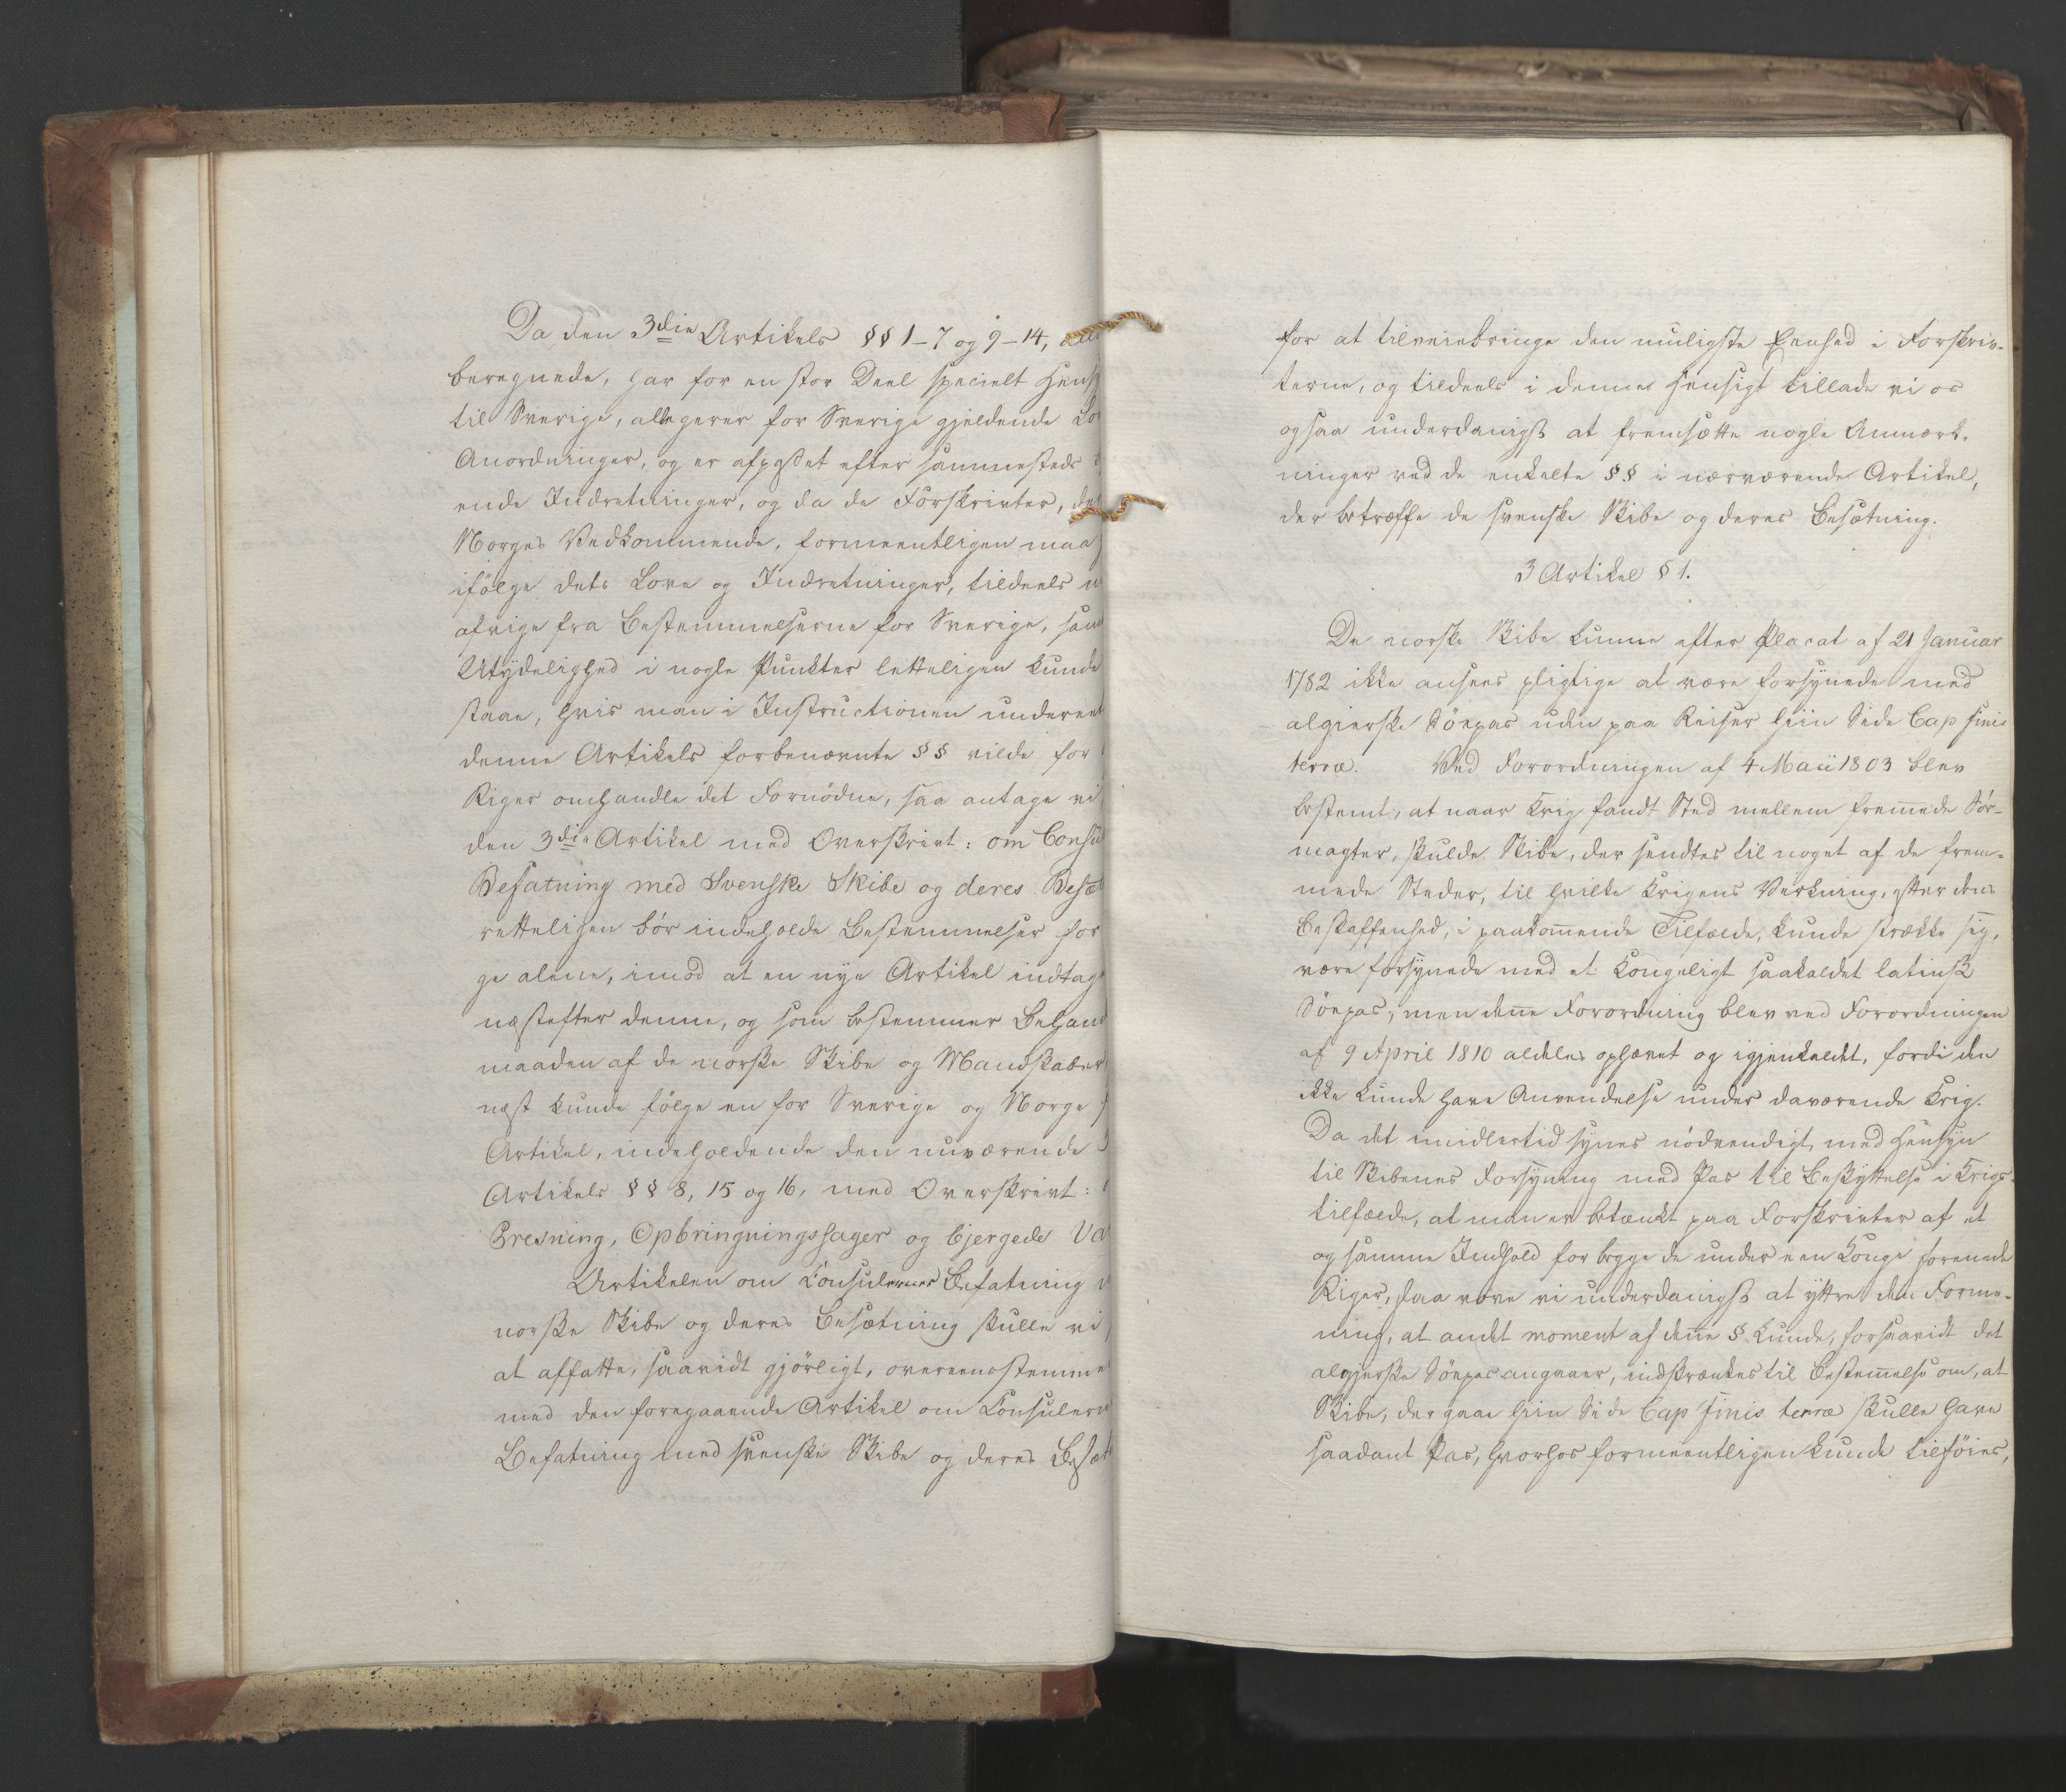 Da den 3die Artikels §§ 1–7 og 9–14,
beregnede, har for en stor Deel specielt Hens
til Sverige, allegerer for Sverige gjeldende Lo
Anordninger, og er afpasset efter sammesteds
ende Indretninger, og da de Forskrivter, der
Norges Vedkommende, formeentligen maa
ifölge dets Love og Indretninger, tildeels
afvige fra Bestemmelserne for Sverige, samt
Utydelighed i nogle Punkter letteligen kunde
staae, hvis man i Instructionen undereet
denne Artikels forbenævnte §§ vilde for
Riger omhandle det Fornödne, saa antage vi
den 3die Artikel med Overskrivt: om Consul
Befatning med Svenske Skibe og deres Besæt
retteligen bör indeholde Bestemmelser for
ge alene, imod at en nye Artikel indtag
næstefter denne, og som bestemmer Behand
maaden af de norske Skibe og Mandskaber
næst kunde fölge en for Sverige og Norge
Artikel, indeholdende den nuværende
Artikels §§ 8, 15 og 16, med Overskrivt:
Presning, Opbringningssager og bjergede Va
Artikelen om Consulernes Befatning
norske Skibe og deres Besætning skulle vi
at affatte, saavidt gjörligt, overeensstemme
med den foregaaende Artikel om Consulern
Befatning med svenske Skibe og deres Besæt
for at tilveiebringe den muligste Eenhed i Forskriv-
terne, og tildeels i denne Hensigt tillade vi os
ogsaa underdanigst at fremsætte nogle Anmærk-
ninger ved de enkelte §§ i nærværende Artikel,
der betræffe de svenske Skibe og deres Besætning.
3 Artikel § 1.
De norske Skibe kunne efter Placat af 21 Januar
1782 ikke ansees pligtige at være forsynede med
algierske Söepas uden paa Reiser hiin Side Cap finis
terræ. Ved Forordningen af 4 Maii 1803 blev
bestemt, at naar Krig fandt Sted mellem fremmede Sör-
magter, skulde Skibe, der sendtes til noget af de frem-
mede Steder, til hvilke Krigens Virkning, efter dens
Beskaffenhed, i paakommende Tilfælde, kunde strække sig,
være forsynede med et Kongeligt saakaldet latinsk
Söepas; men denne Forordning blev ved Forordningen
af 9 April 1810 aldeles ophævet og igjenkaldt, fordi den
ikke kunde have Anvendelse under daværende Krig.
Da det imidlertid synes nödvendigt, med Hensyn
til Skibenes Forsyning med Pas til Beskyttelse i Krigs-
tilfælde, at man er betænkt paa Forskrivter af et
og samme Indhold for begge de under een Konge forenede
Riger, saa vove vi underdanigst at yttre den Forme-
ning, at andet moment af denne § kunde, forsaavidt det
algierske Söepas angaaer, indskrænkes til Bestemmelse om, at
Skibe, der gaae hiin Side Cap finis terræ skulle have
saadant Pas, hvorhos formeentligen kunde tilföies,